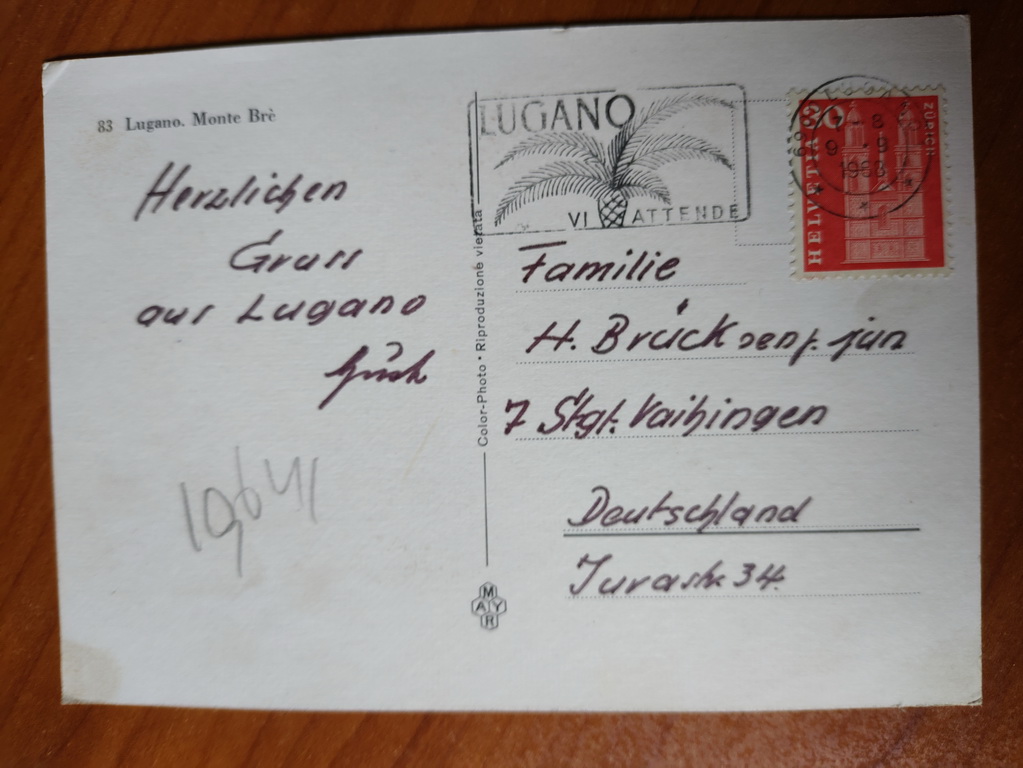 83 Lugano. Monte Brè
Herzlichen
Gruss
aus Lugano
LUGANO
VI ATTENDE
HELVETIA
ZÜRICH
Color-Photo • Riproduzione vietata
Familie
H. Brück jun
7 Stgt. Vaihingen
Deutschland
Jurastr. 34.
MAYR